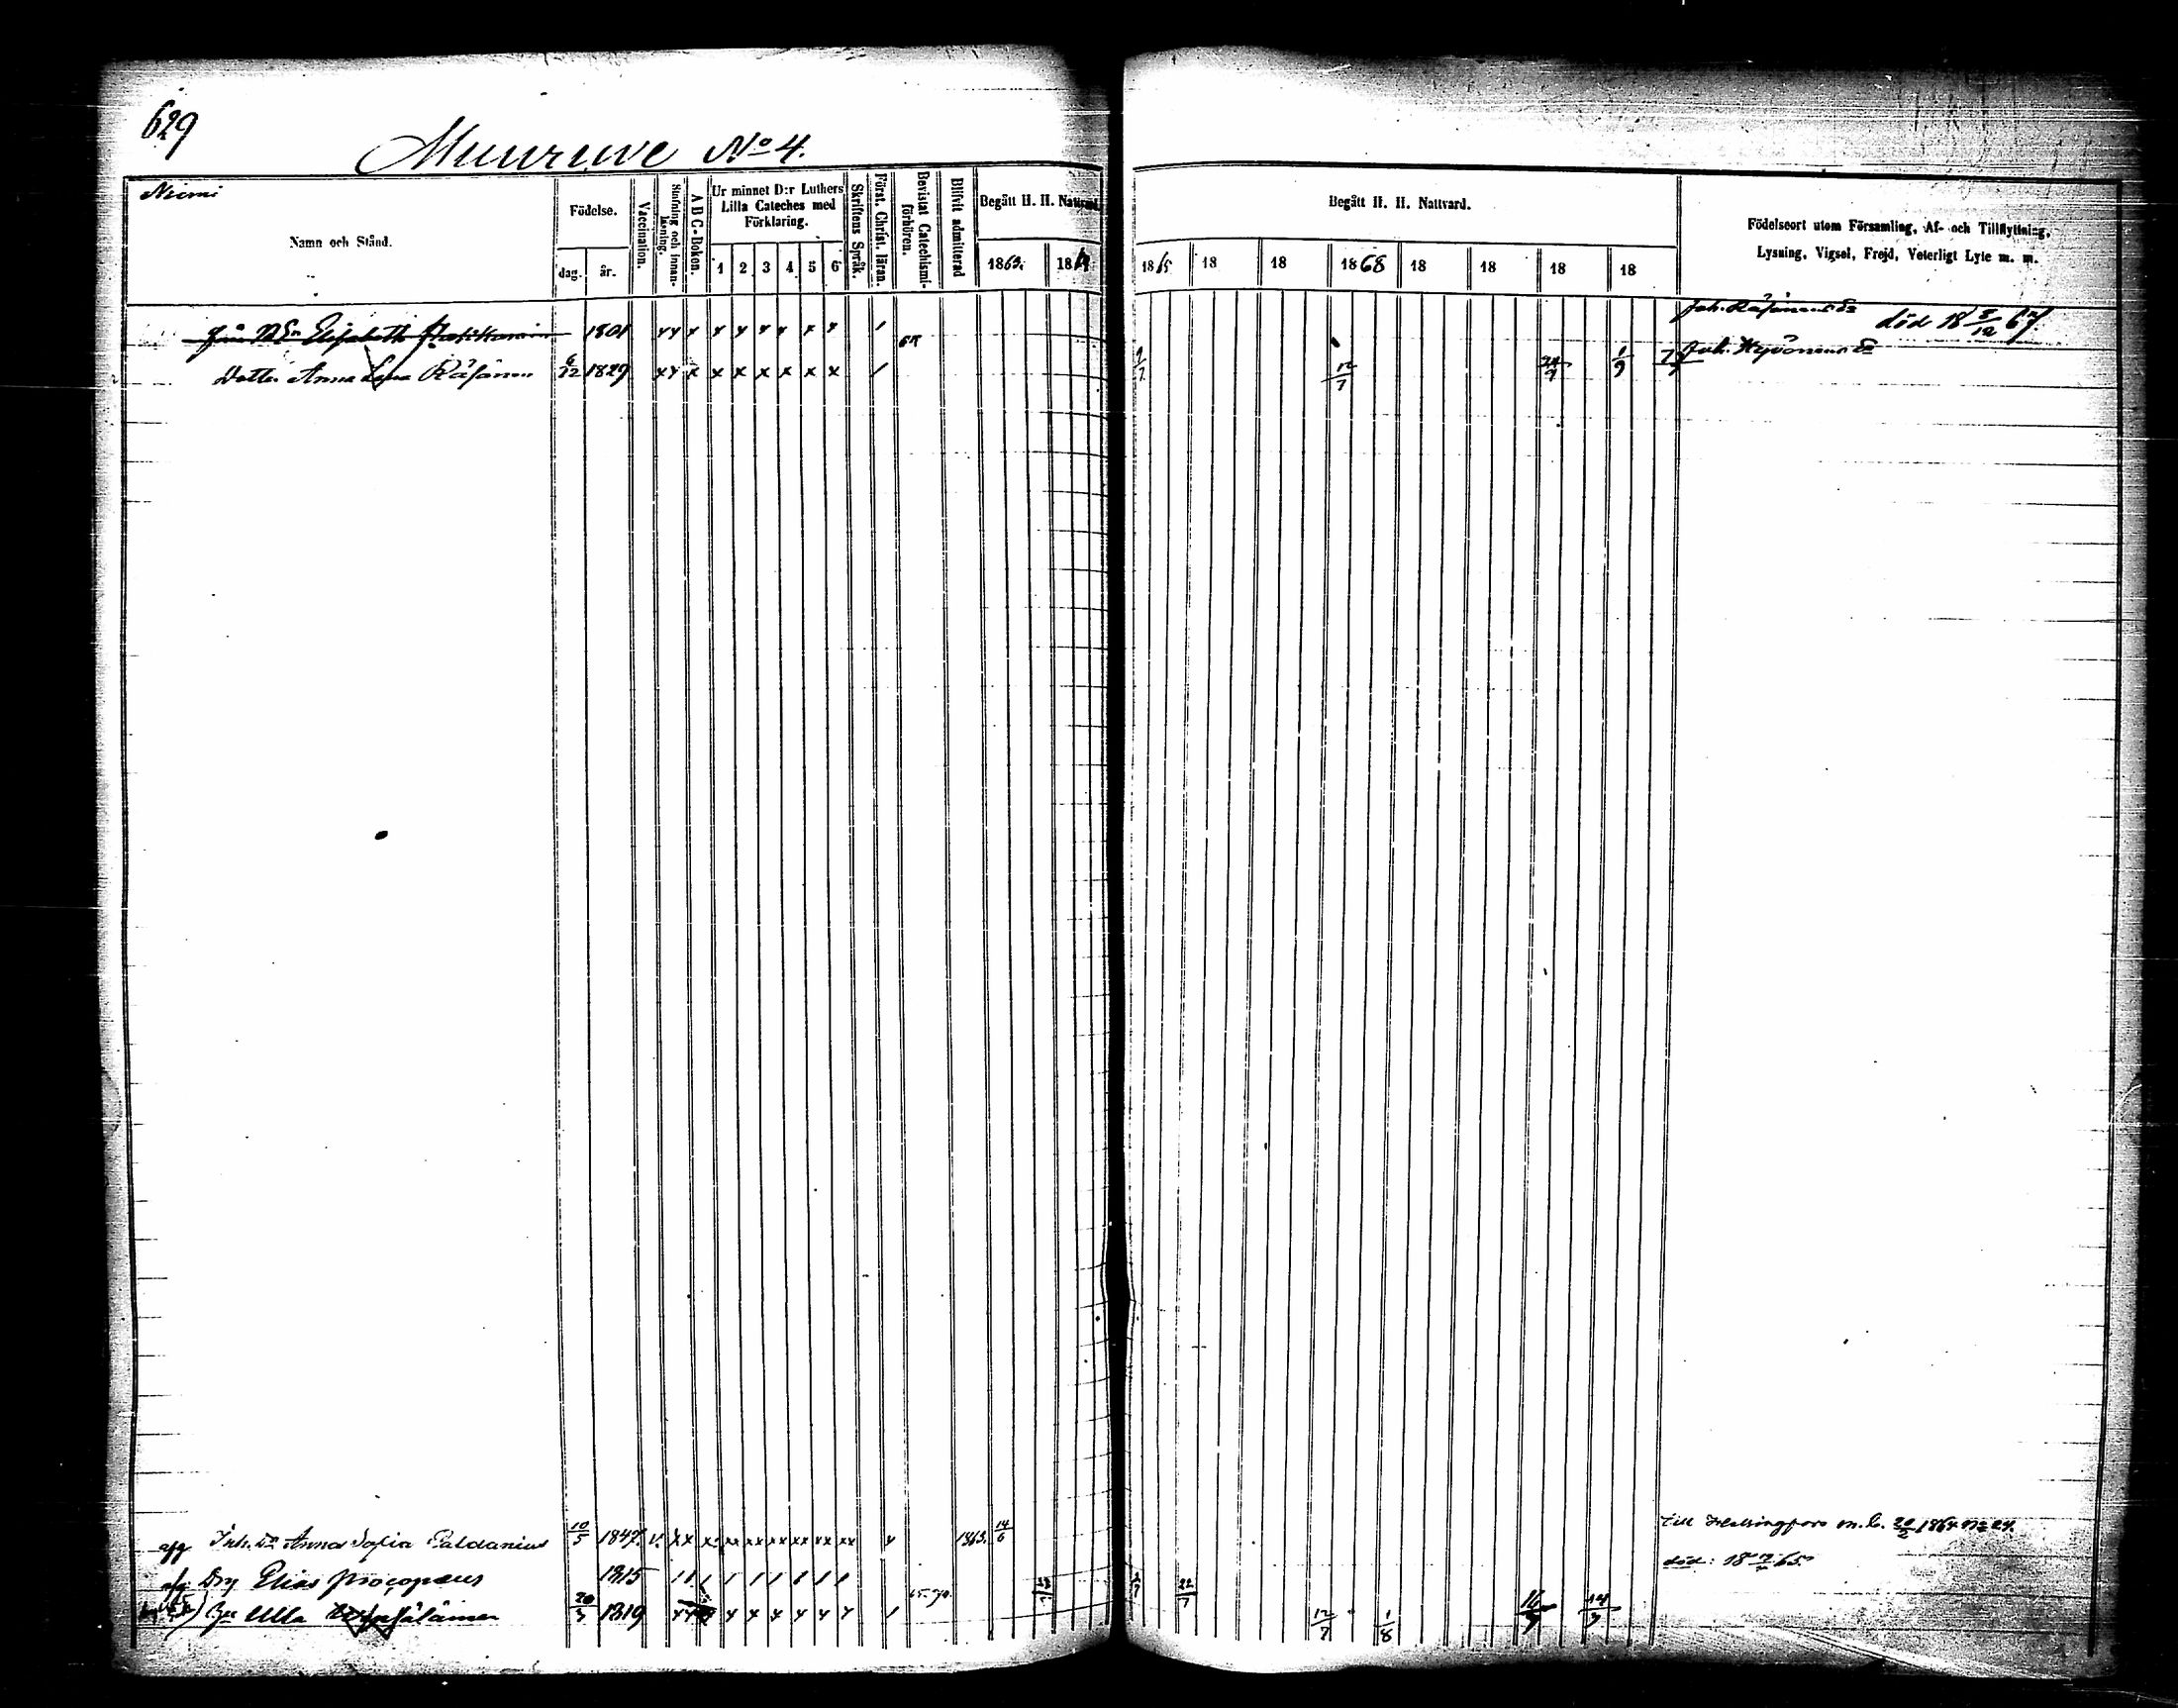 629
Muuruve No 4.
Niemi
Namn och Stånd.
Födelse.
dag. år.
Vaccination.
Stafning och innanläsning.
A B C-Boken.
Ur minnet D:r Luthers Lilla Cateches med Förklaring.
1 2 3 4 5 6
Skriftens Språk.
Först. Christ. läran.
Bevistat Catechismi-förhören.
Blifvit admitterad
Begått H. H. Nattvard.
1863. 1864
Begått H. H. Nattvard.
1865 18 18 1868 18 18 18 18
Födelseort utom Församling, Af- och Tillflyttning,
Lysning, Vigsel, Frejd, Veterligt Lyte m. m.
Elisabeth 1801 död 18 5/12 67
Joh. Räsänens
Dotter Anna Lena Räsänen 6/12 1829 x x x x x x x x x 12/7 1/9
Joh. Hyvönens
afg Inh. Dr Anna Sofia Paldanius 10/5 1847. v. xx x xx xx xx xx xx xx 1863. 14/6 till Helsingfors m. b. 20/2 1864 No 24.
afg Drg Elias Procopæus 1815 död: 18 65
Ulla 20/3 1819 22/7 12/7 1/8